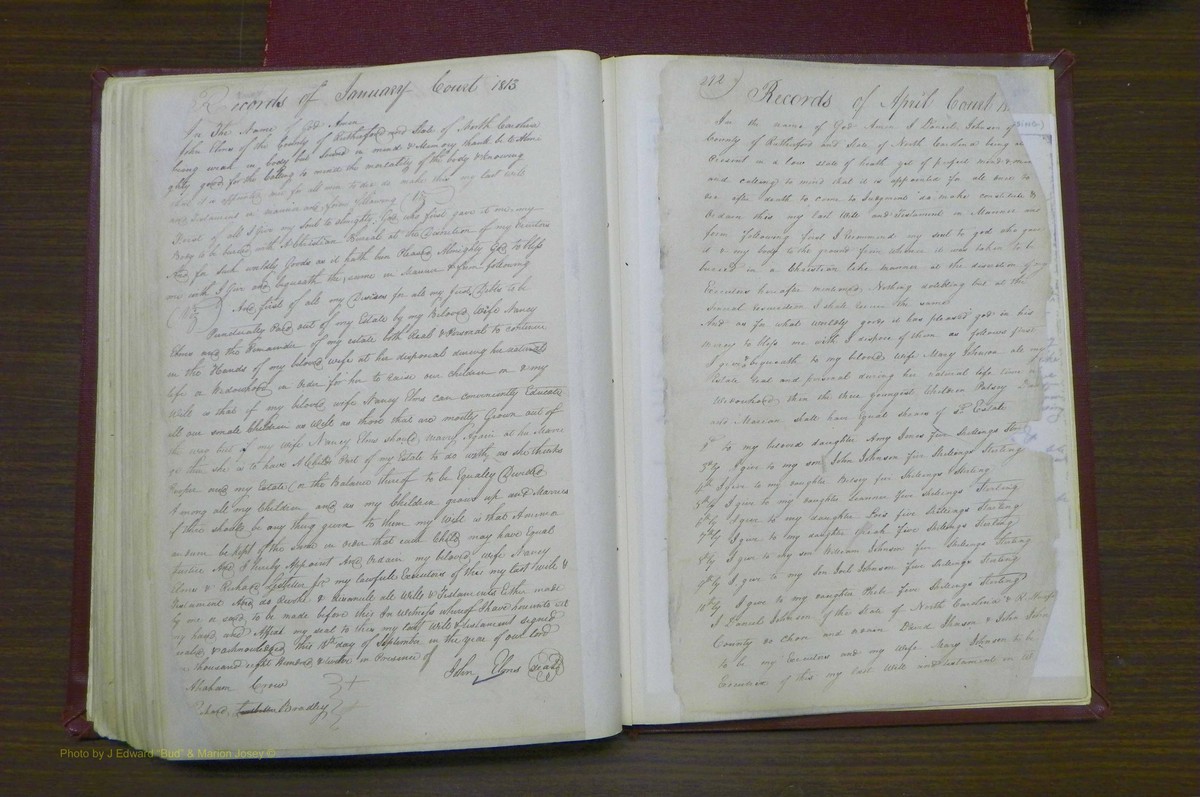 Records of January Court 1813
In The Name of God Amen
John Elms of the County of Rutherford and State of North Carolina
being weak in body but sound in mind & Memory thank be to Alm-
ghty god for the Calling to mind the mortality of the body & knowing
that it is appointed once for all men to die do make this my last will
and Testament in manner and form following
First of all I give my Soul to Almighty God who first gave it me my
Body to be buried with A Christian Burial at the Discretion of my Executors
And for such worldly Goods as it hath been Pleased Almighty God to bless
me with I Give and bequeath the same in Manner & form following
And first of all my Desire is for all my Just Debts to be
Punctually Paid out of my Estate by my Beloved Wife Nancy
Elms and the Remainder of my estate both Real & Personal to continue
in the Hands of my beloved Wife at her disposal during her natural
life or Widowhood in Order for her to raise our children on & my
Will is that if my beloved wife Nancy Elms can conveniently Educate
all our small Children as well as those that are mostly Grown out of
the way but if my wife Nancy Elms should marry Again
then she is to have A Childs Part of my Estate to do with as she thinks
Proper and my Estate or the Balance thereof to be Equally Divided
Among all my Children and as my Children grows up and Marries
if there should be any thing given to them my Will is that A memor-
andum be kept of the same in order that each Child may have Equal
Justice And I hereby Appoint And Ordain my beloved Wife Nancy
Elms & Richard for my lawfull Executors of this my last Will &
Testament And do Revoke & disannul all Wills & Testaments Either made
by me or said to be made before this In Witness whereof I have hereunto set
my hand and Affixt my seal to this my last Will & testament signed
sealed & acknowledged this 18th day of September in the year of our Lord
one thousand eight Hundred & twelve in Presence of
John Elms (Seal)
Abraham Crow
Richard Bradley
272
Records of April Court 18
In the name of God Amen I Daniel Johnson of
County of Rutherford and State of North Carolina being at
Present in a low state of health yet of perfect mind &
and calling to mind that it is appointed for all once to
die after death to come to Judgment do make constitute &
Ordain this my last Will and Testament in Manner and
form following first I recommend my soul to god who gave
it & my body to the ground from whence it was taken to be
buried in a Christian like manner at the discretion of my
Executors hereafter mentioned Nothing doubting but at the
General resurrection I shall receive the same
And as for what worldly goods it has pleased god in his
mercy to bless me with I dispose of them as follows first
I give & bequeath to my beloved wife Mary Johnson all my
Estate Real and personal during her natural life time or
Widowhood then the three youngest Children Patsey
and Marian shall have equal shares of sd Estate
to my beloved daughter Amy Jones five Shillings
3dly I give to my son John Johnson five Shillings Sterling
4th I give to my daughter Betsey five Shillings Sterling
5thly I give to my daughter five Shillings Sterling
6thly I give to my daughter Lois five Shillings Sterling
7thly I give to my daughter Sarah five Shillings Sterling
8thly I give to my son William Johnson five Shillings Sterling
9thly I give to my son Joel Johnson five Shillings Sterling
10thly I give to my daughter Phebe five Shillings Sterling
I Daniel Johnson of the State of North Carolina &
County do chose and nomin David Johnson & John John
to be my Executors and my Wife Mary Johnson to be
Executrix of this my last Will and Testament in
Photo by J Edward "Bud" & Marion Josey ©